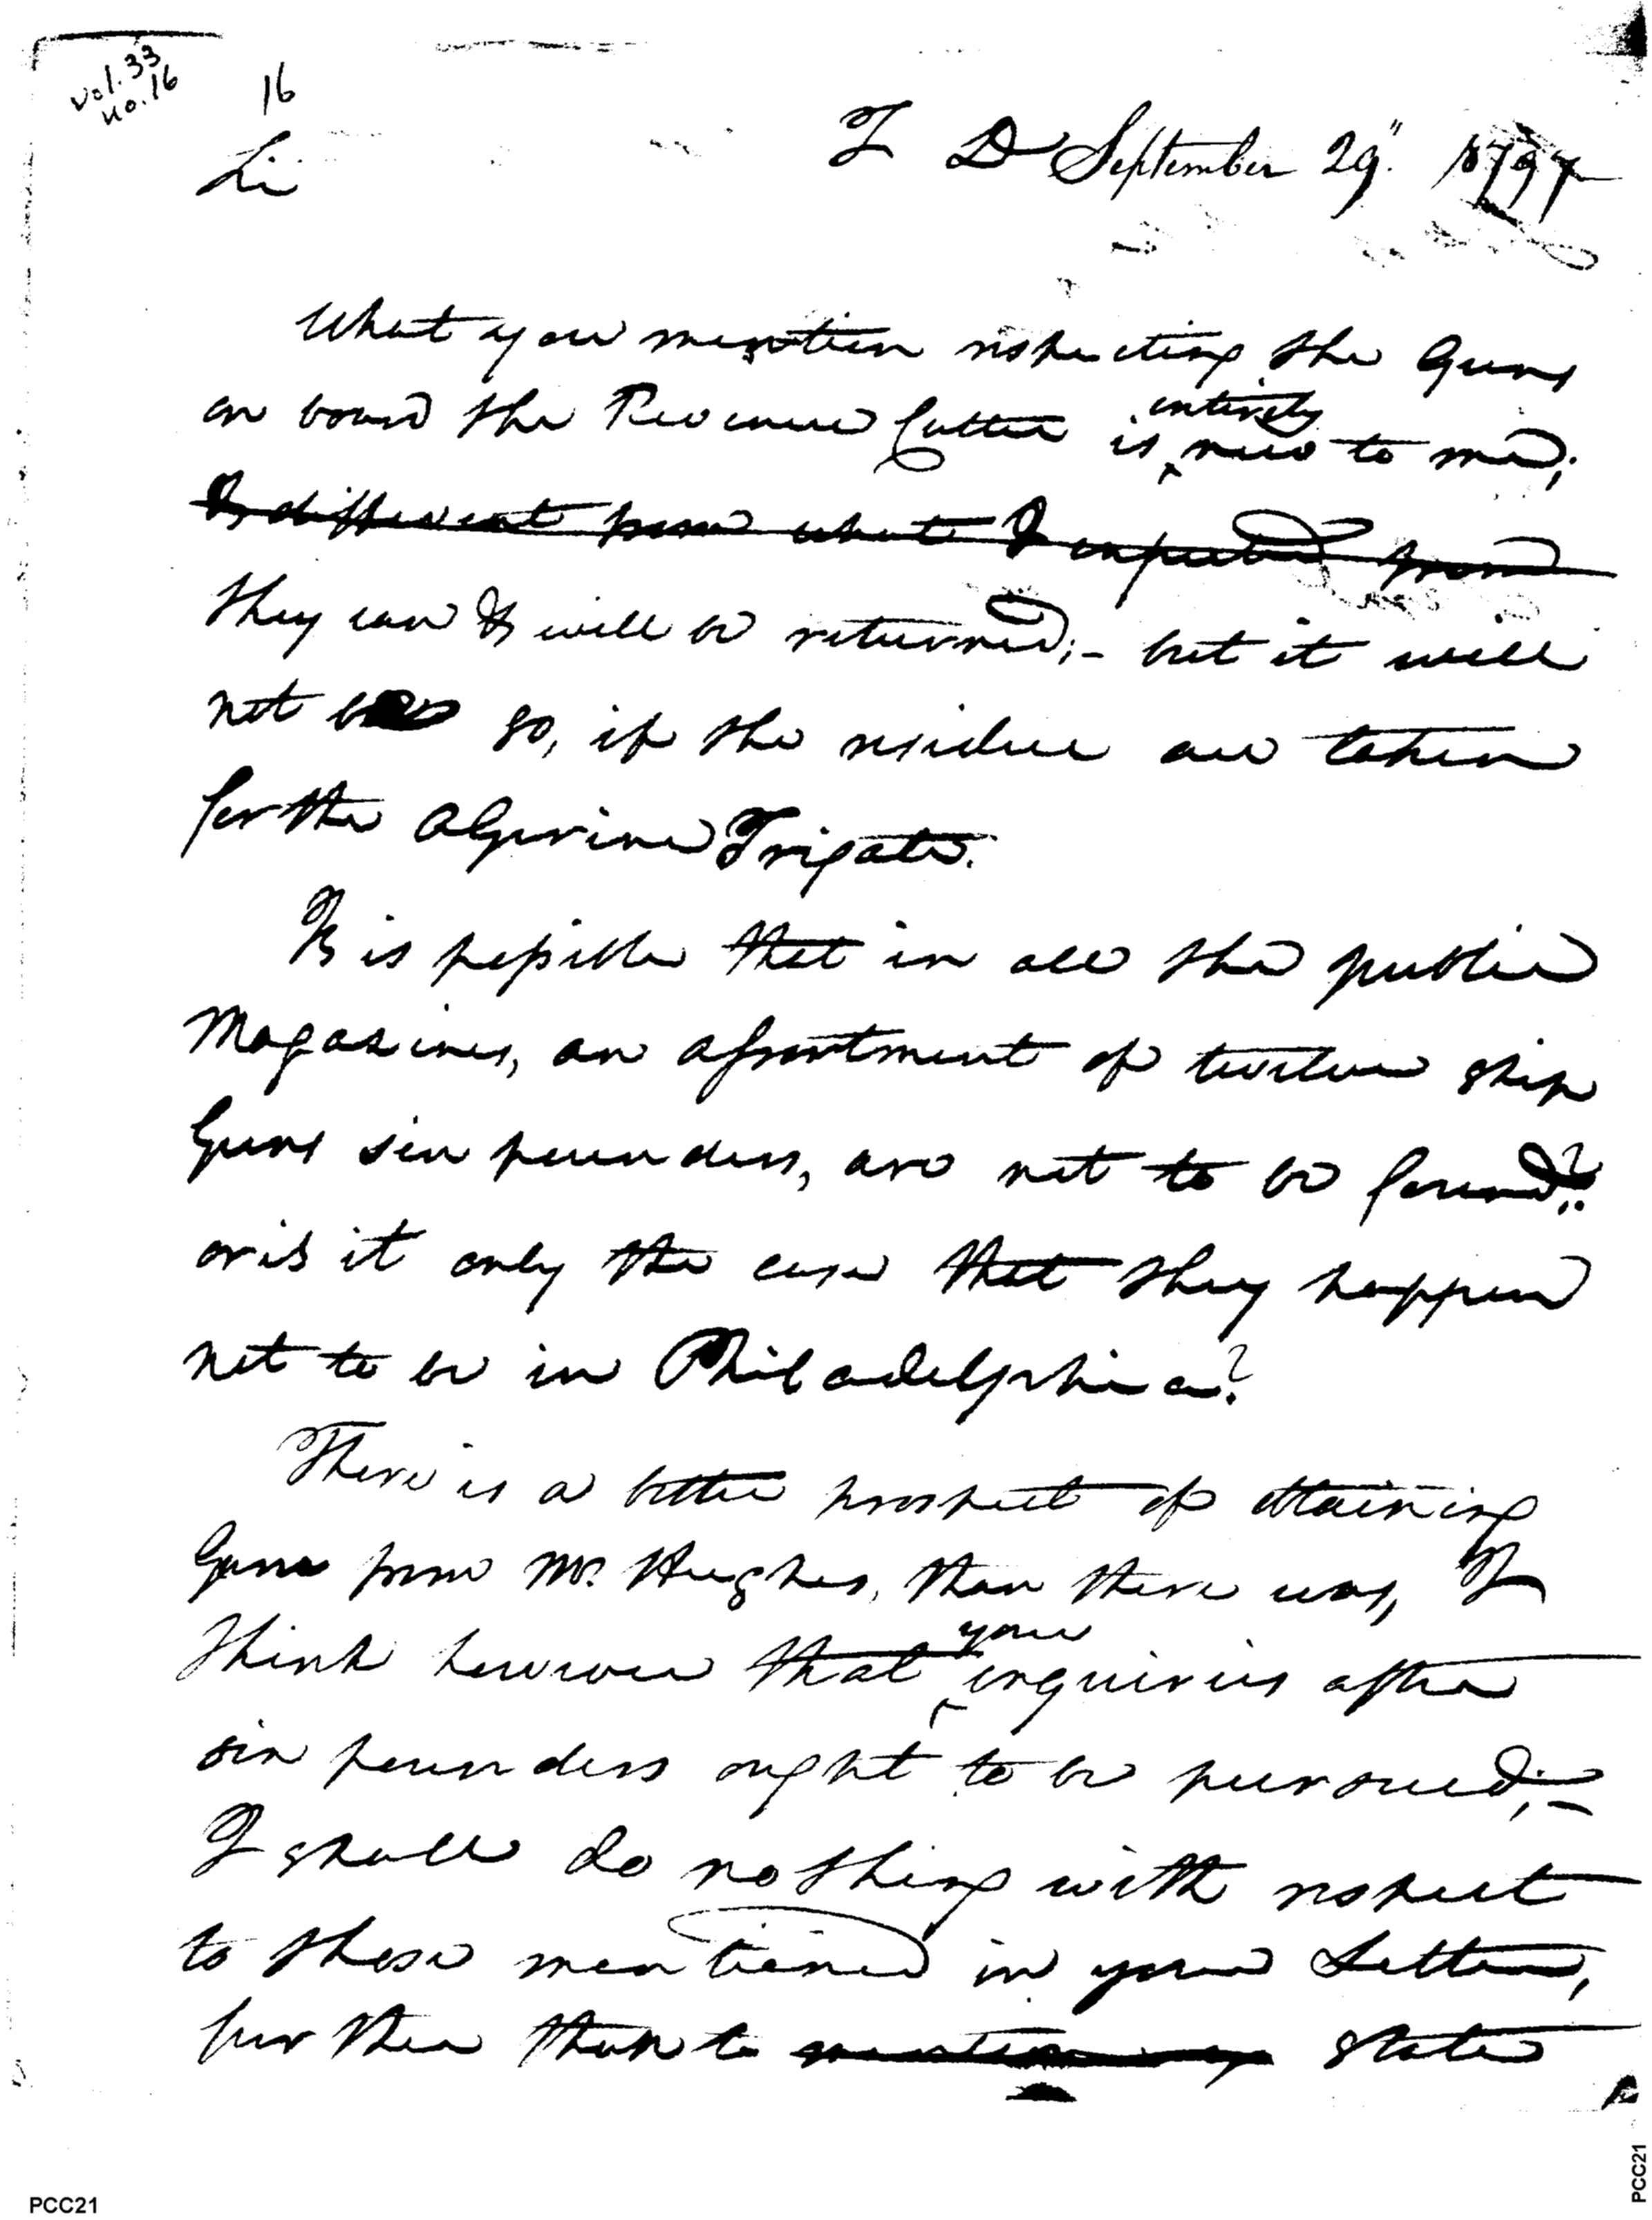 vol. 33
no. 16
16
T D September 29". 1797
Sir
What you mention respecting the Guns
on board the Revenue Cutter is entirely new to me;
& different from what I expected from
they can & will be returned;- but it will
not be so, if the residue are taken
for the Algerine Frigate.
Is it possible that in all the public
Magazines, an assortment of twelve ship
Guns six pounders, are not to be found?
or is it only the case that they happen
not to be in Philadelphia?
There is a better prospect of obtaining
Guns from Mr. Hughes, than there was, I
think however that your inquiries after
six pounders ought to be pursued;-
I shall do nothing with respect
to those mentioned in your Letter,
further than to state
PCC21
PCC21